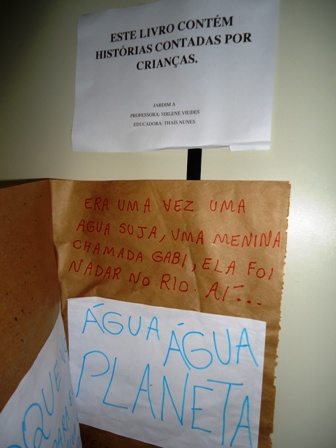 ESTE LIVRO CONTÉM
HISTÓRIAS CONTADAS POR
CRIANÇAS.
JARDIM A
PROFESSORA: SIRLENE VIEIDES
EDUCADORA: THAÍS NUNES
ERA UMA VEZ UMA
ÁGUA SUJA, UMA MENINA
CHAMADA GABI, ELA FOI
NADAR NO RIO. AÍ...
ÁGUA ÁGUA
PLANETA